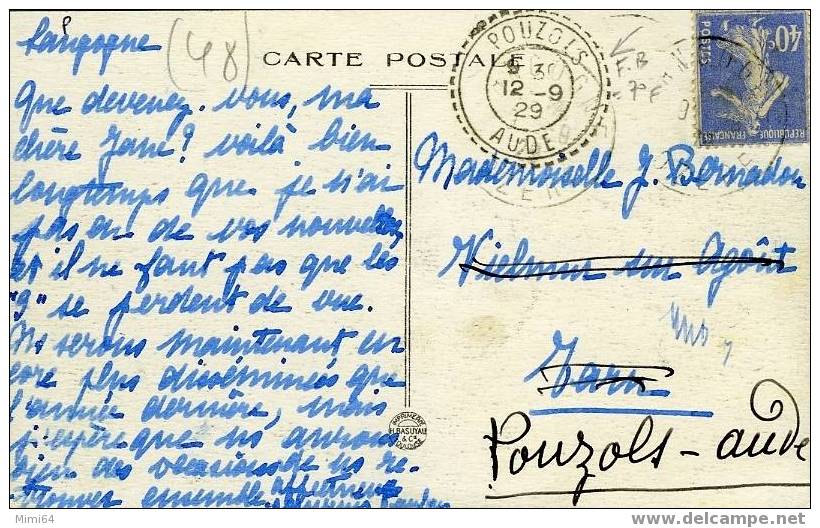 Langogne
(48)
CARTE POSTALE
Que devenez-vous, ma
chère Jane? voilà bien
longtemps que je n'ai
pas eu de vos nouvelles
et il ne faut pas que les
"9" se perdent de vue.
Ns serons maintenant en
core plus disséminées que
l'année dernière, mais
j'espère que ns aurons
bien des occasions de ns re-
trouver ensemble
POUZOLS
12 -9
29
AUDE
F.B
7° F
40c
POSTES
REPUBLIQUE FRANÇAISE
Mademoiselle J. Bernadou
Vielmur sur Agoût
Tarn
Pouzols-aude
IMPRIMERIE
H. BASUYAU
& Cie
TOULOUSE
Mimi64
delcampe.net